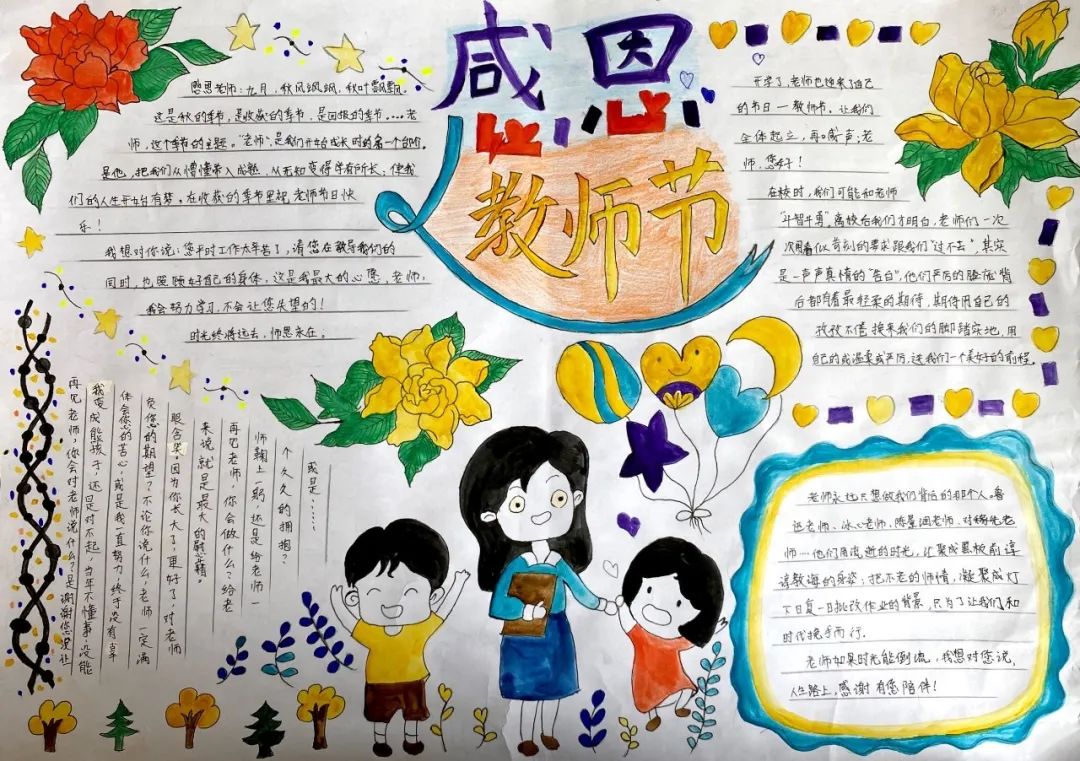 感恩
教师节
感恩老师:九月,秋风飒飒,秋叶飘飘
这是秋的季节,是收获的季节,是回报的季节....老
师,这个季节的主题。"老师",是我们开始成长时的第一个台阶。
是他,把我们从懵懂带入成熟,从无知变得学有所长;使我
们的人生开始有梦。在收获的季节里祝,老师节日快
乐!
我想对你说:您平时工作太辛苦了,请您在教导我们的
同时,也照顾好自己的身体,这是我最大的心愿,老师,
我会努力学习,不会让您失望的!
时光终将远去,师恩永在。
开学了,老师也迎来了自己
的节日一教师节。让我们
全体起立,再喊声:老
师,您好!
在校时,我们可能和老师
"斗智斗勇"。离校后我们才明白,老师们一次
次看似苛刻的要求跟我们"过不去",其实
是一声声真情的"告白",他们严厉的脸庞背
后都有着最轻柔的期待,期待用自己的
孜孜不倦换来我们的脚踏实地,用
自己的或温柔或严厉,送我们一个美好的前程
再见老师,你会对老师说什么?是谢谢您没让
我变成熊孩子,还是对不起,当年不懂事,没能
体会您的苦心,或是我一直努力,终于没有辜
负您的期望?不论你说什么,老师一定满
眼含笑。因为你长大了,更好了,对老师
来说就是最大的慰藉。
再见老师,你会做什么?给老
师鞠上一躬,还是给老师一
个久久的拥抱?
或是......
老师永远只想做我们背后的那个人。鲁
迅老师、冰心老师,陈景润老师,对杨先老
师一他们用流逝的时光,汇聚成黑板前谆
谆教诲的身姿;把不老的师情,凝聚成灯
下日复一日批改作业的背景,只为了让我们和
时代携手而行.
老师如果时光能倒流,我想对您说,
人生路上,感谢有您陪伴!